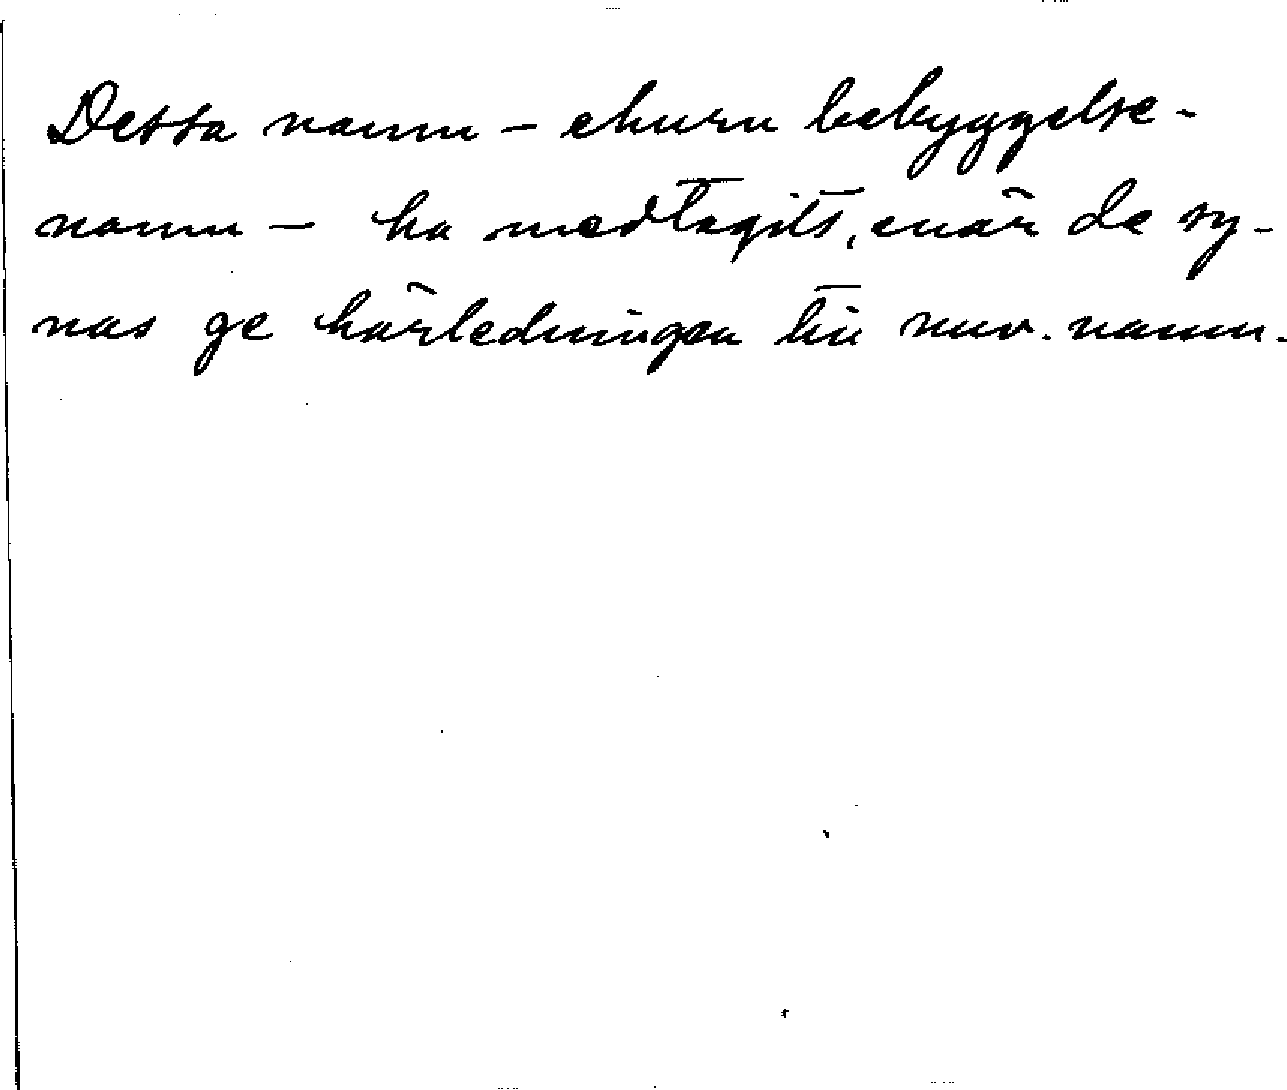 Dessa namn - ehuru bebyggelse-
namn - ha medtagits, enär de sy-
nas ge härledningen till nuv. namn.